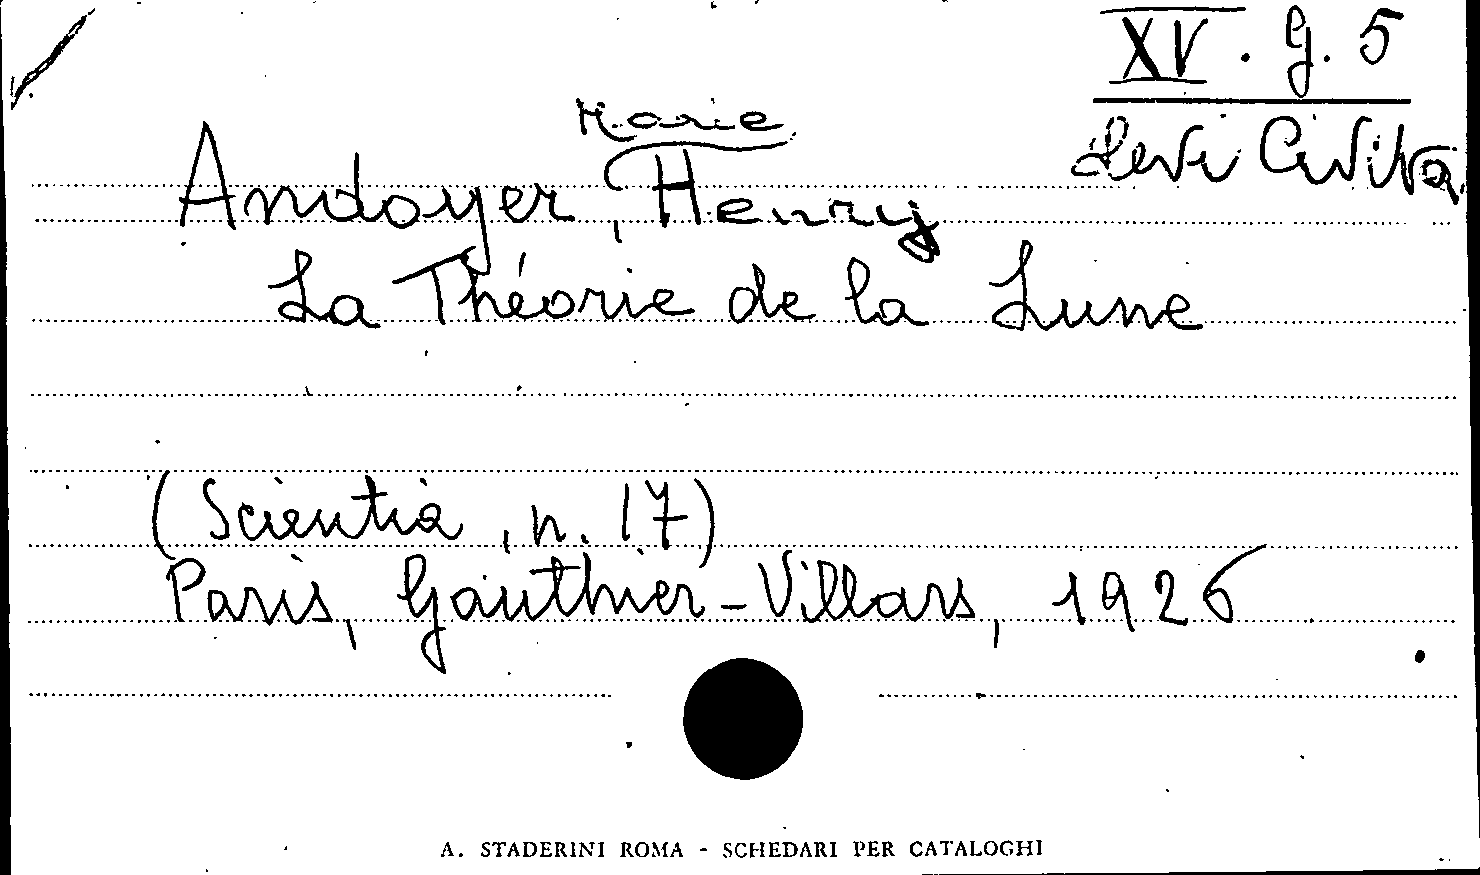 XV. G. 5
Levi Civita
Marie
Andoyer, Henry
La Théorie de la Lune
(Scientia, n. 17)
Paris, Gauthier-Villars, 1926
A. STADERINI ROMA - SCHEDARI PER CATALOGHI